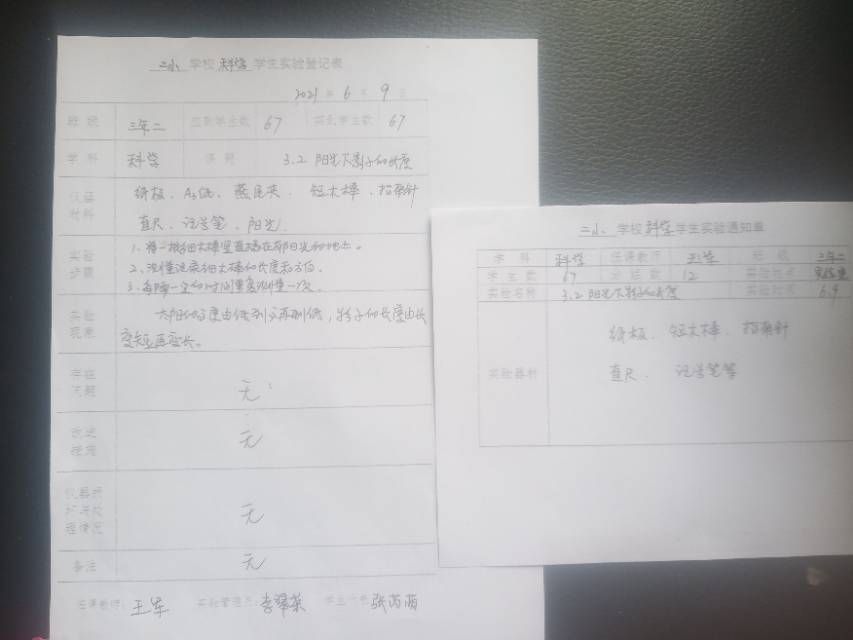 二小 学校 科学 学生实验登记表
2021 年 6 月 9 日
班级 三年二 应到学生数 67 实到学生数 67
学科 科学 课题 3.2 阳光下影子的长度
仪器材料 纸板、A3纸、燕尾夹、短木棒、指南针
直尺、记号笔、阳光
实验步骤 1、将一根细木棒竖直插在有阳光的地上。
3、每隔一定的时间重复测量一次。
实验现象 影子的长度由长
变短再变长。
存在问题 无
改进 无
无
备注 无
任课教师: 王军 实验管理员: 李翠荣 学生代表 张芮菡
二小 学校 科学 学生实验通知单
学科 科学 任课教师 王军 班级 三年二
学生数 67 分组数 12 实验地点 实验室
实验名称 3.2 阳光下影子的长度 实验时间 6.9
实验器材 纸板、短木棒、指南针
直尺、记号笔等